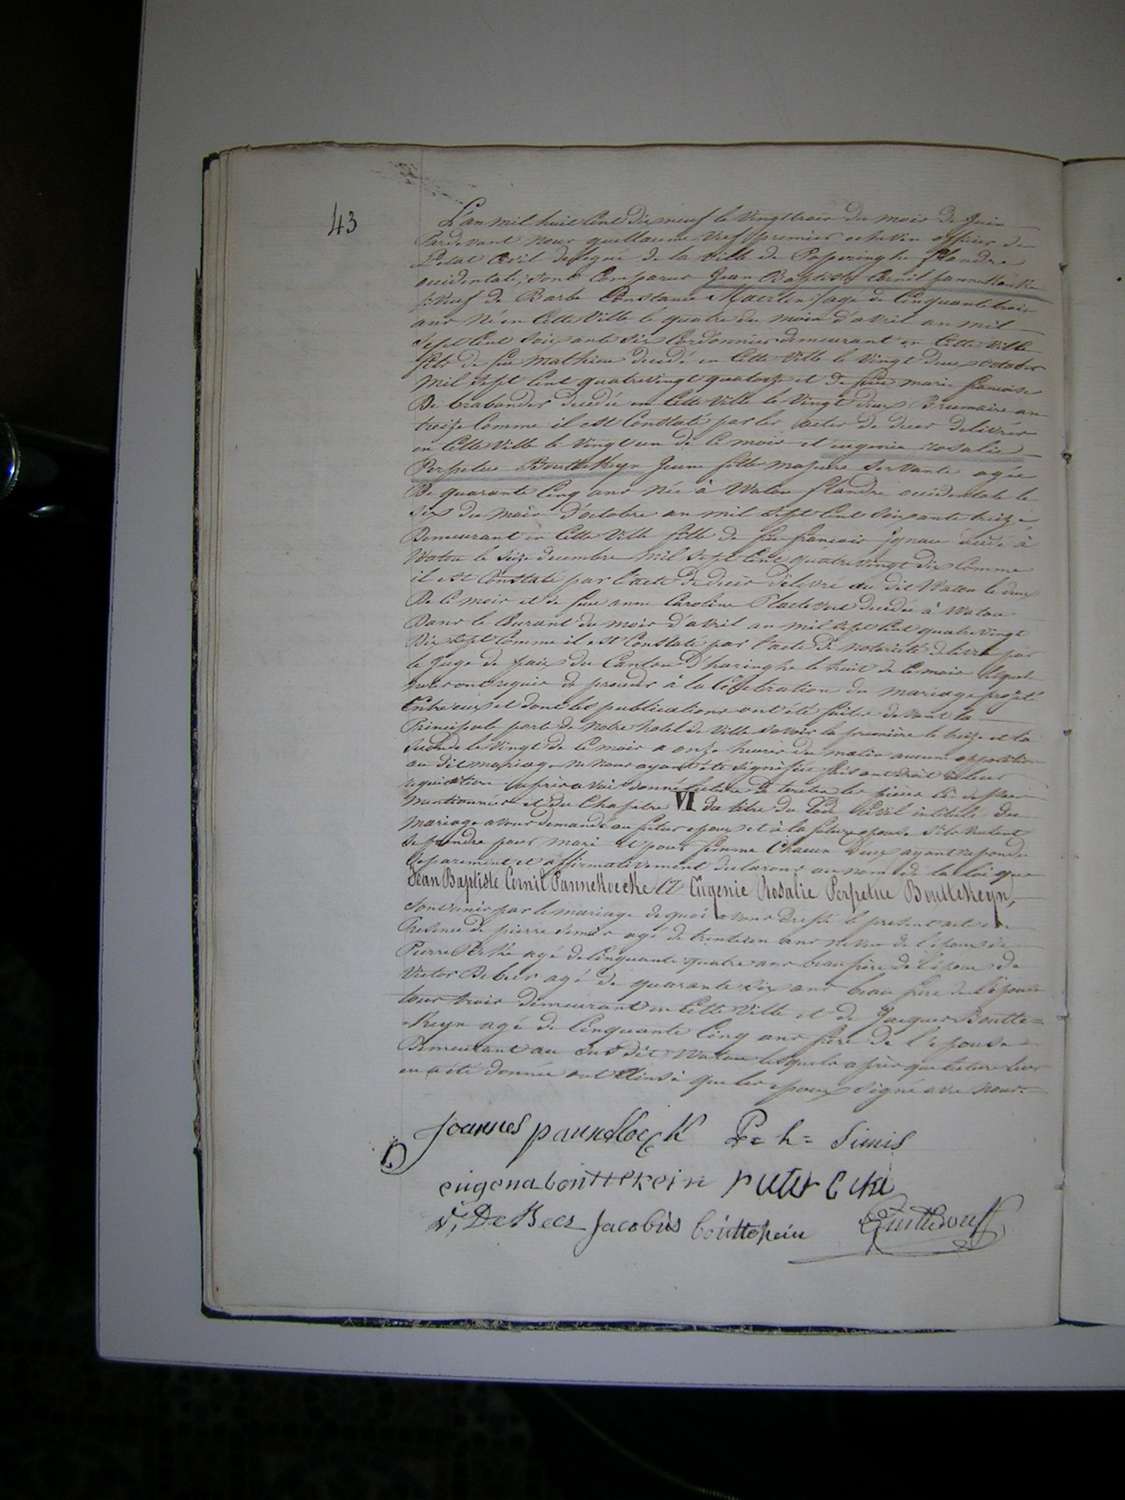 43
L'an mil huit Cent dix neuf le Vingt trois du mois de Juin
Pardevant nous guillaume premier echevin officier de
l'etat Civil de la Ville de Poperinghe flandre
occidentale; sont Comparus Jean Baptiste Cornil pannekoecke
Veuf de Barbe Constance agé de Cinquante trois
ans né en Cette Ville le quatre du mois d'avril an mil
Sept Cent Soixante Six Cordonnier demeurant en Cette Ville
fils de feu mathieu decedé en Cette Ville le Vingt deux octobre
mil Sept Cent quatrevingt quatorze et de feue marie francoise
De brabander decedée en Cette Ville le Vingt deux Brumaire an
treize Comme il est Constaté par les actes de deces delivrés
en Cette Ville le Vingt un de Ce mois et eugenie rosalie
Perpetue Bouttekeyn Jeune fille majeure Servante agée
De quarante Cinq ans née à Watou flandre occidentale le
Six du mois d'octobre an mil Sept Cent Soixante treize
Demeurant en Cette Ville fille de feu francois Ignace decedé à
Watou le Seize decembre mil Sept Cent quatrevingt dix Comme
il est Constaté par l'acte de deces delivré au dit Watou le deux
De Ce mois et de feue anne Caroline decedée à Watou
Dans le Courant du mois d'avril an mil Sept Cent quatrevingt
Dix Sept Comme il est Constaté par l'acte de notorieté delivré par
le Juge de paix du Canton D'haringhe le huit de Ce mois lesquels
nous ont requis de proceder à la Celebration du mariage projeté
Entre eux et dont les publications ont été faites devant la
Principale porte de notre hotel de Ville Savoir la premiere le treize et la
Seconde le Vingt de Ce mois a onze heures du matin aucune opposition
au dit mariage ne nous ayant été Signifiée faisant droit à leur
requisition apres avoir donné lecture de toutes les pieces Ci dessus
Mentionnées et du Chapitre VI du titre du Code Civil intitulé du
Mariage avons demandé au futur epoux et à la future epouse S'ils veulent
Se prendre pour mari et pour femme Chacun deux ayant repondu
Separement et affirmativement declarons au nom de la loi que
Jean Baptiste Cornil Pannekoecke Et Eugenie Rosalie Perpetue Bouttekeyn,
Sont unis par le mariage de quoi avons Dressé le present acte en
Presence de pierre Simis agé de trente un ans neveu de l'epoux de
Pierre agé de Cinquante quatre ans beau frère de l'epoux de
Victor De beir agé de quarante Six ans beau frere de l'epouse
tous trois demeurant en Cette Ville et de Jacques Boutte=
=Keyn agé de Cinquante Cinq ans frere de l'epouse
Demeurant au Susdit Watou lesquels après que lecture leur
en a été donnée ont Ainsi que les epoux Signé avec nous.
Joannes pannekoeck P= h= Simis
eugena bouttekein
V, De Beer Jacobus bouttekein